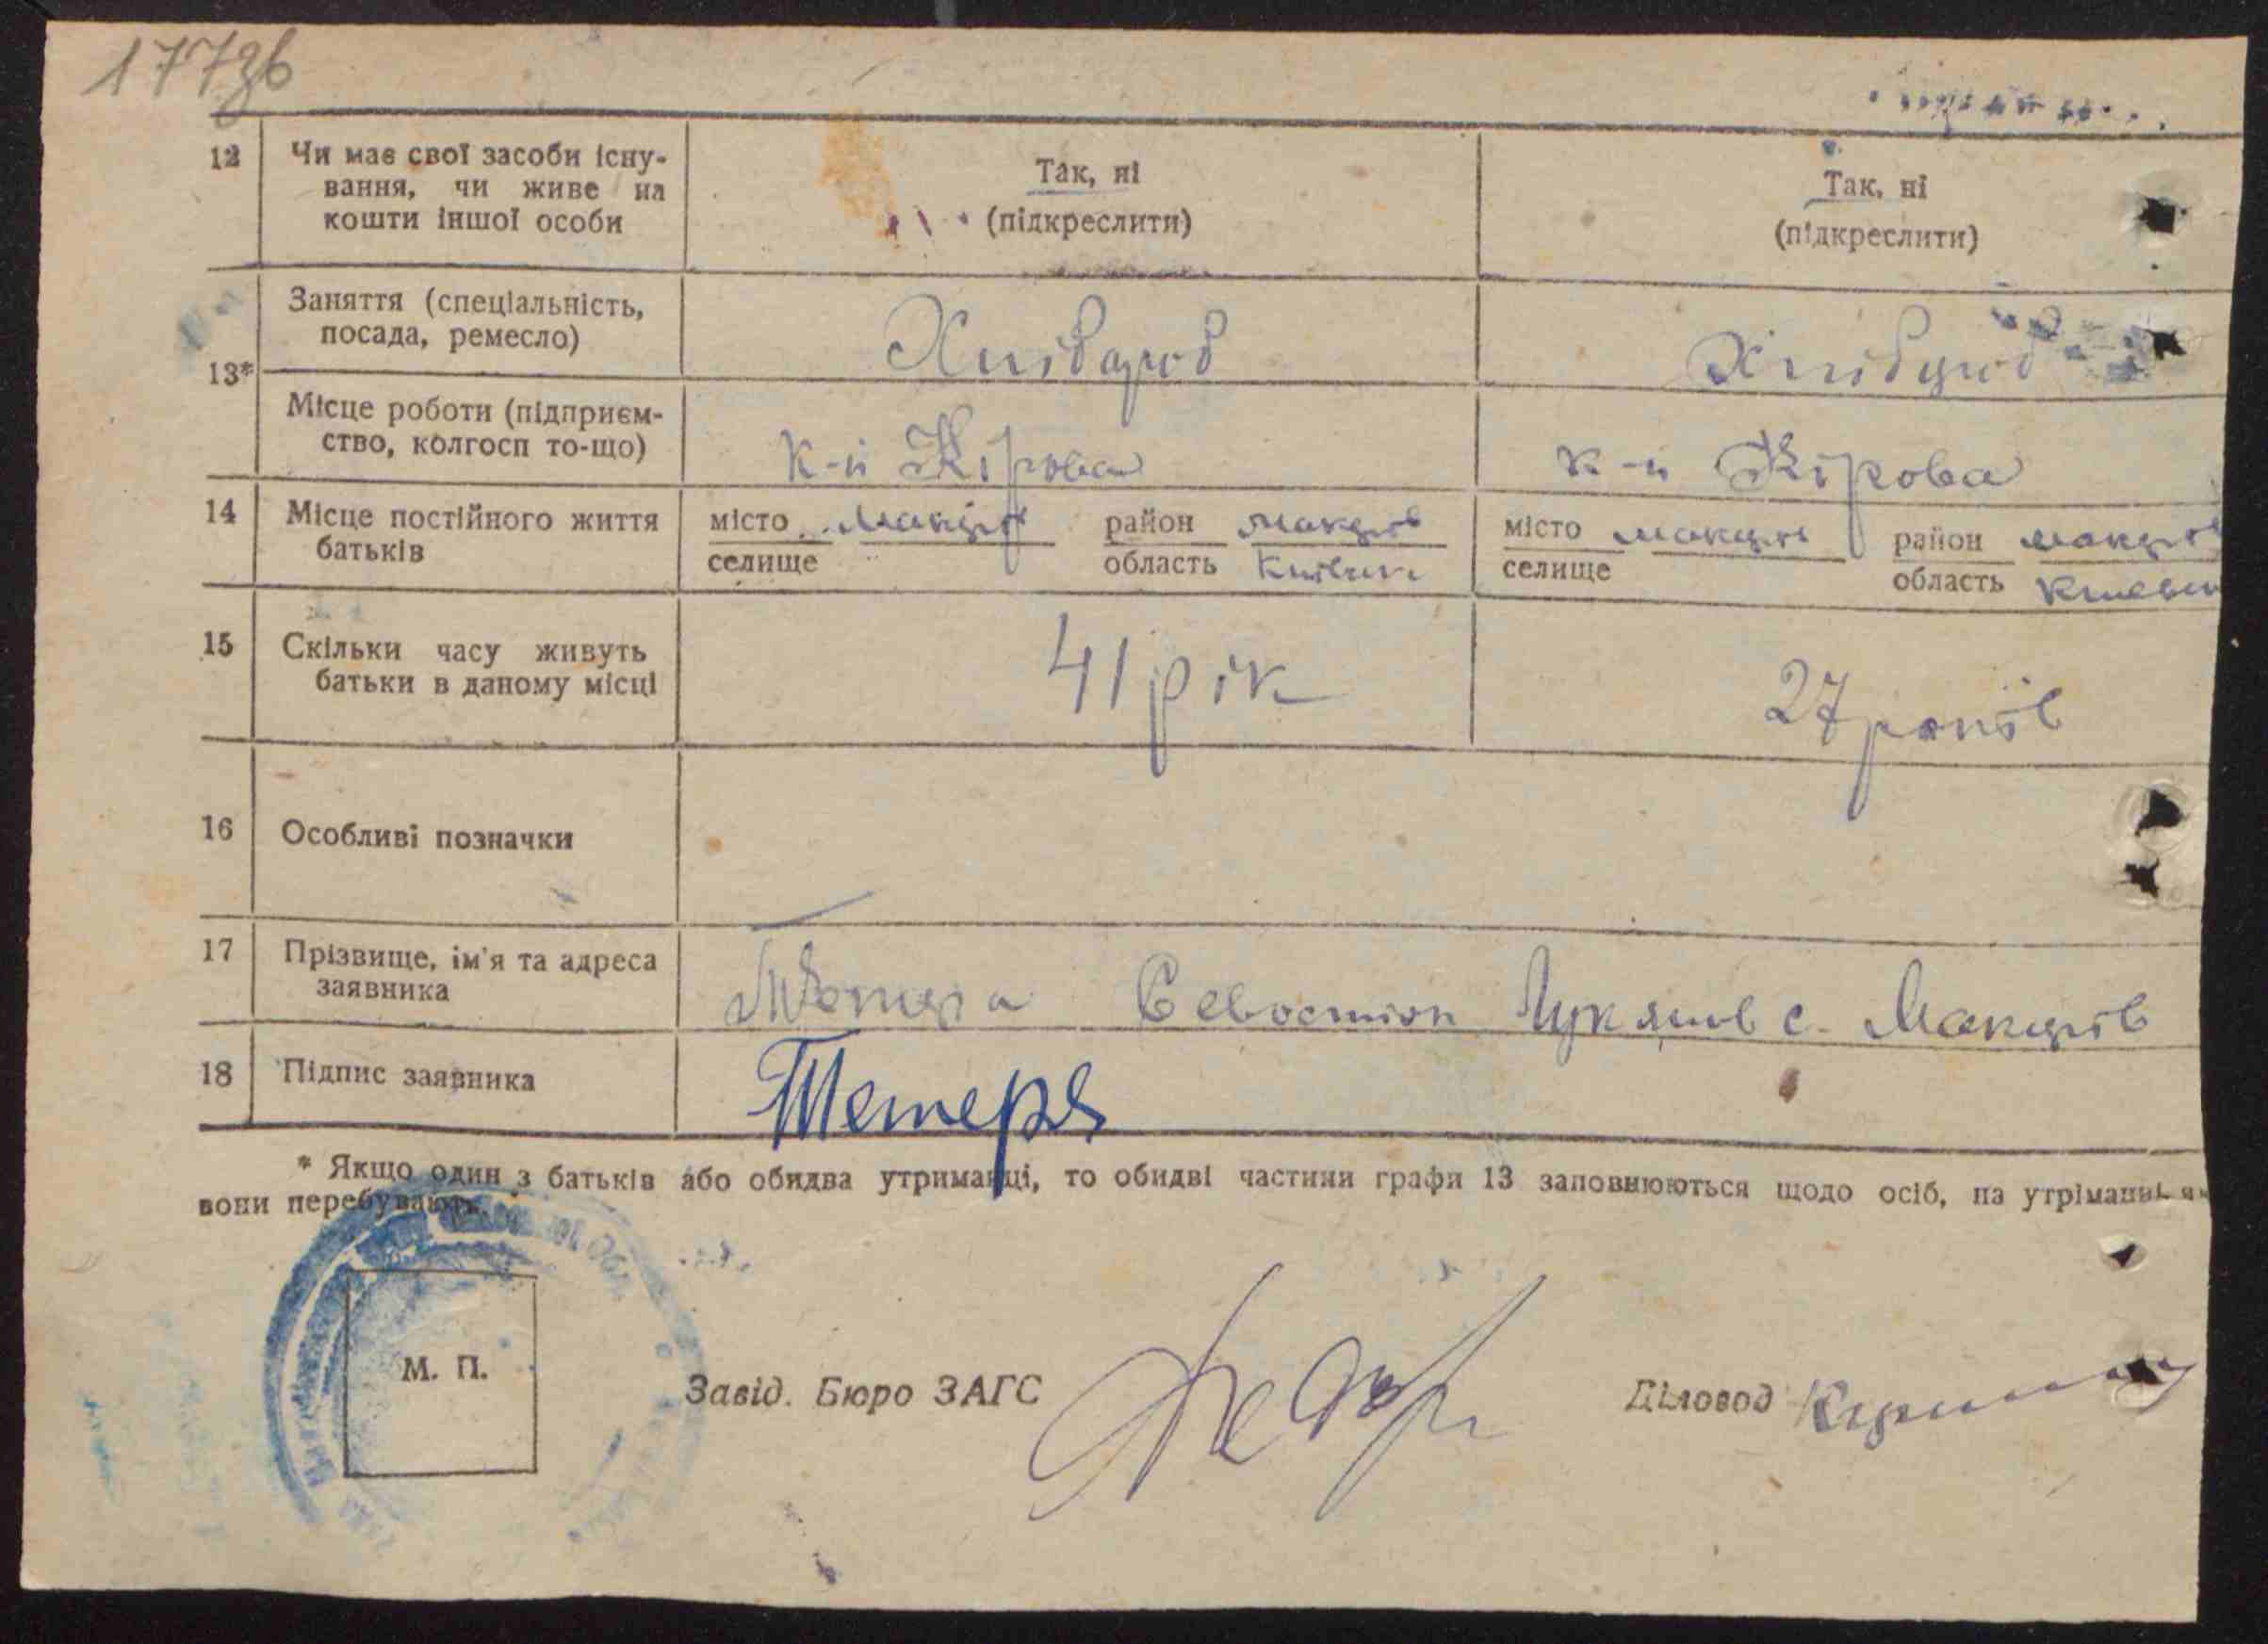 177зв
12 Чи має свої засоби існу- Так, ні Так, ні
вання, чи живе на (підкреслити) (підкреслити)
кошти іншої особи
13* Заняття (спеціальність, Хлібороб Хлібороб
посада, ремесло)
Місце роботи (підприєм- к-п Кірова к-п Кірова
ство, колгосп то-що)
14 Місце постійного життя місто Макарів район Макарів місто Макарів район Макарів
батьків селище область Київськ селище область
15 Скільки часу живуть 41 рік 27 років
батьки в даному місці
16 Особливі позначки
17 Прізвище, ім'я та адреса Севостіян Лук'янов с. Макарів
заявника
18 Підпис заявника Тетеря
* Якщо один з батьків або обидва утриманці, то обидві частини графи 13 заповнюються щодо осіб, на утріманні
вони перебувають.
М. П.
Завід. Бюро ЗАГС
Діловод